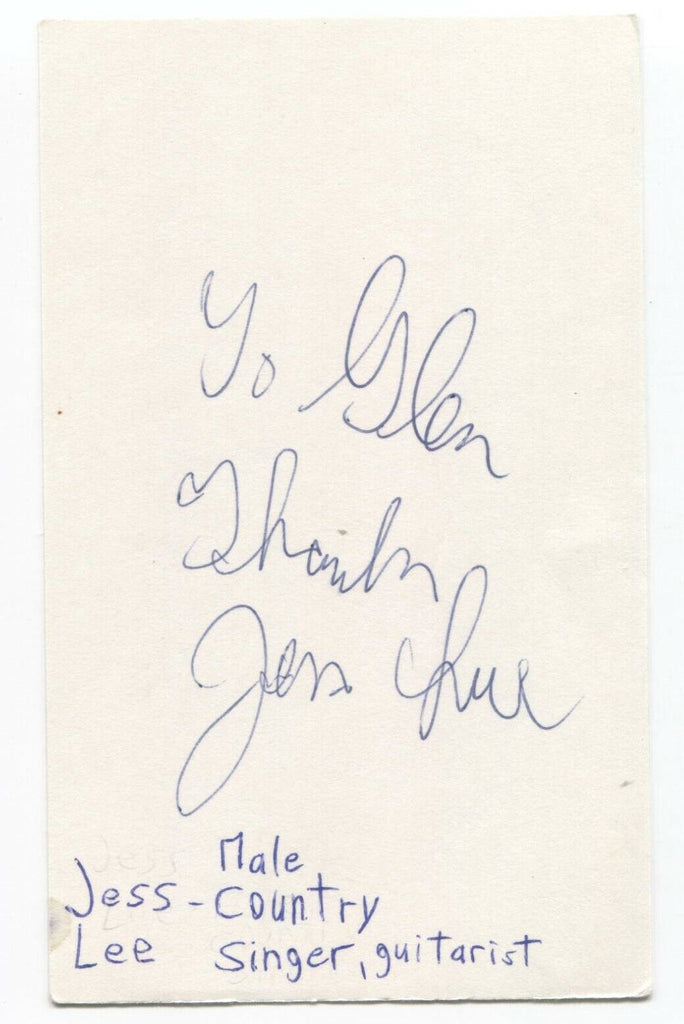 To Glen
Thanks
Jess Lee
Male
Jess - Country
Lee Singer, guitarist